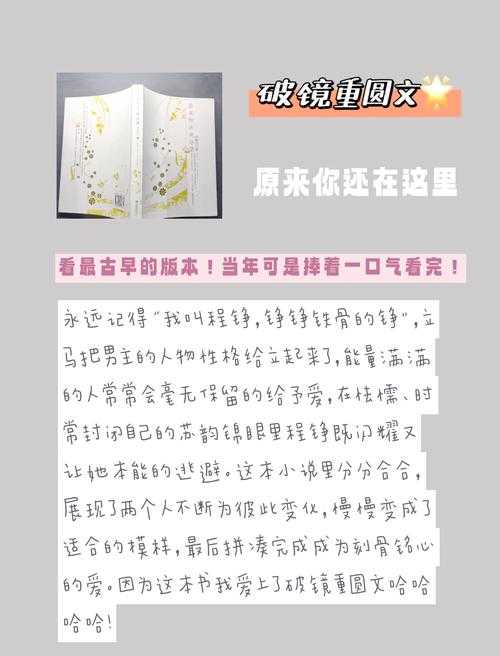 破镜重圆文
原来你还在这里
看最古早的版本！当年可是捧着一口气看完！
永远记得“我叫程铮，铮铮铁骨的铮”，立
马把男主的人物性格给立起来了，能量满满
的人常常会毫无保留的给予爱，在怯懦、时
常封闭自己的苏韵锦眼里程铮既闪耀又
让她本能的逃避。这本小说里分分合合，
展现了两个人不断为彼此变化，慢慢变成了
适合的模样，最后拼凑完成成为刻骨铭心
的爱。因为这本书我爱上了破镜重圆文哈哈
哈哈！